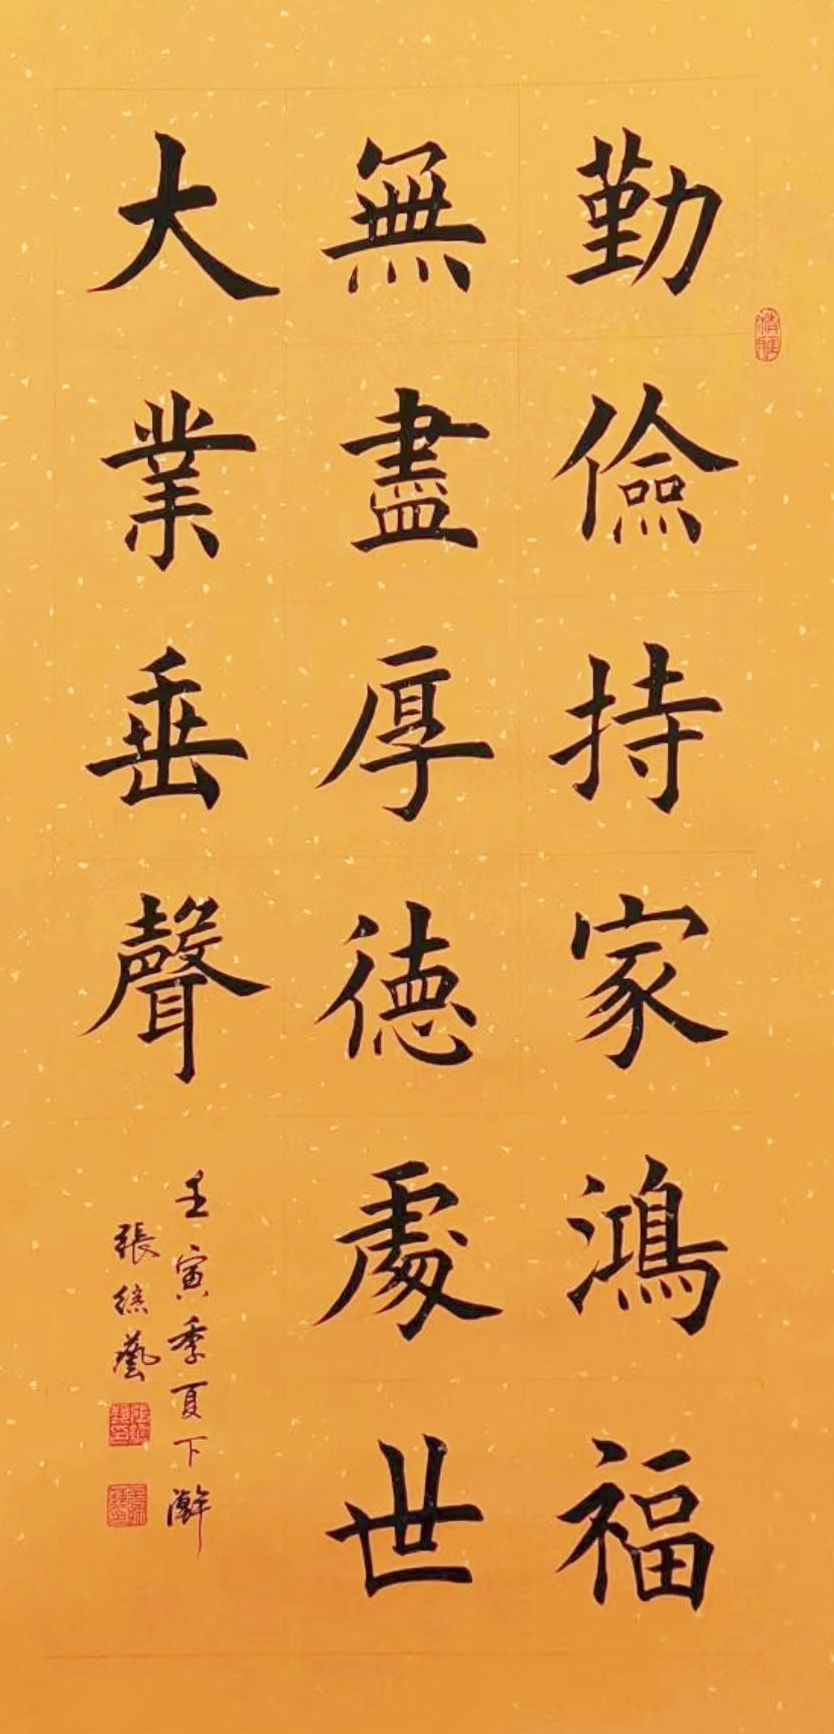 勤儉持家鴻福
無盡厚德處世
大業垂聲
壬寅季夏下澣
張繼藝